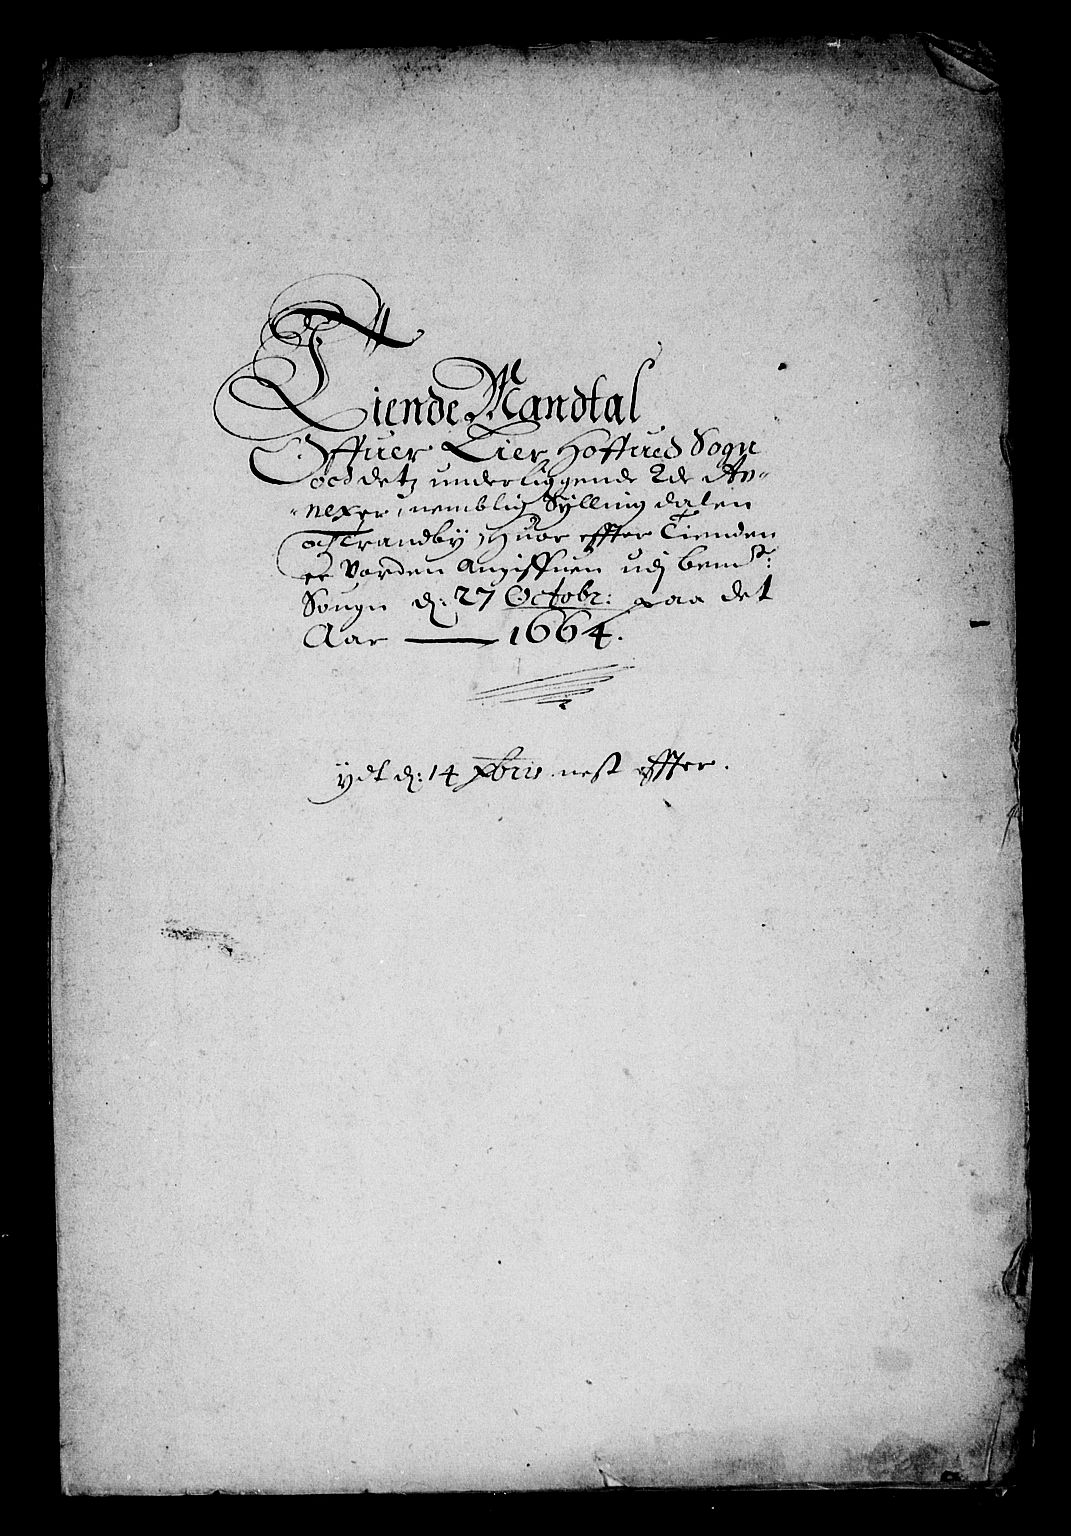 Tiende Mandtal
Offuer Lier Hoffued Sogn
oc detz underliggende 2de An-
-nexer, nemblig Sylling dalen
oc Trandby, Huor effter Tienden
er Vorden Angiffuen udj bemte:
Sougn d: 27 Octobr: paa det
Aar — 1664.
ydt d: 14 Xbris nest effter.